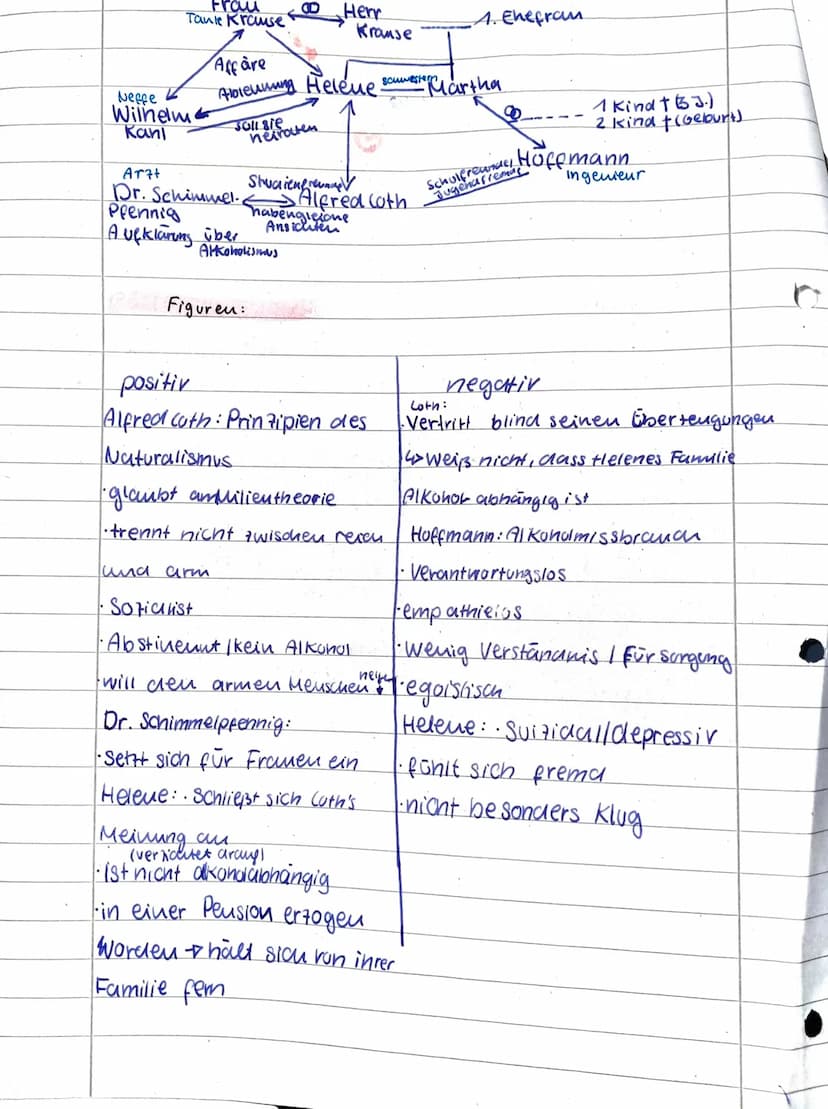 Frau
Tante Krause
Herr
Krause
1. Ehefrau
Affäre
Ablehnung
Helene
schwestern
Martha
Neffe
Wilhelm
Kahl
soll sie
heiraten
1 Kind † (3 J.)
2 Kind † (Geburt)
Hoffmann
Ingenieur
Schulfreunde/
Jugendfreunde
Arzt
Dr. Schimmel-
Pfennig
Studienfreunde
Alfred Loth
haben gleiche
Ansichten
Aufklärung über
Alkoholismus
Figuren:
positiv
Alfred Loth: Prinzipien des
Naturalismus
· glaubt an Milieutheorie
· trennt nicht zwischen reich
und arm
· Sozialist
· Abstinent / kein Alkohol
· will den armen Menschen helfen
Dr. Schimmelpfennig:
· Setzt sich für Frauen ein
Helene: · Schließt sich Loth's
Meinung an
(verzichtet drauf)
· ist nicht alkoholabhängig
· in einer Pension erzogen
Worden → hält sich von ihrer
Familie fern
negativ
Loth:
· Vertritt blind seinen Überzeugungen
↳ Weiß nicht, dass Helenes Familie
Alkohol abhängig ist
Hoffmann: Alkoholmissbrauch
· Verantwortungslos
· empathielos
· Wenig Verständnis / Fürsorgung
· egoistisch
Helene: · Suizidal/depressiv
· fühlt sich fremd
· nicht besonders klug